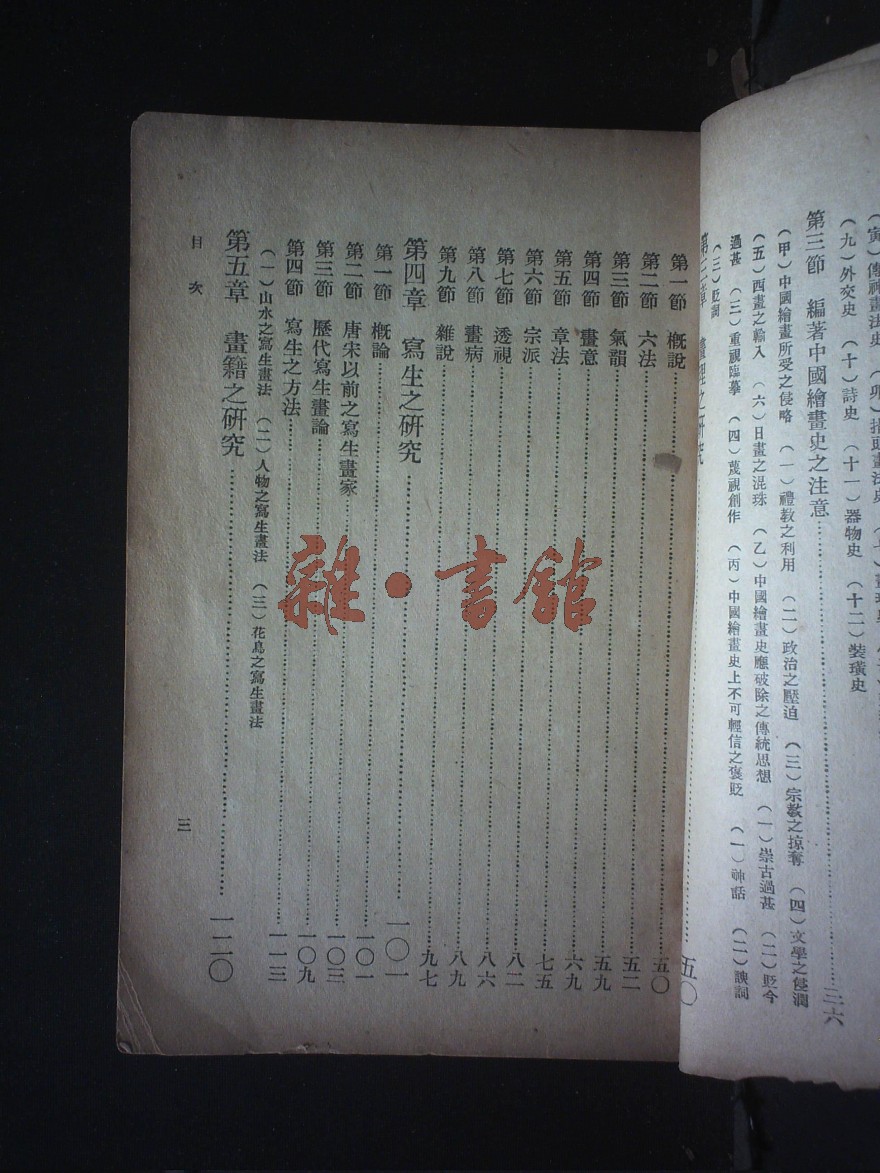 第三節　編著中國繪畫史之注意……三六
（九）外交史　（十）詩史　（十一）器物史　（十二）裝璜史
（甲）中國繪畫所受之侵略　（一）禮教之利用　（二）政治之壓迫　（三）宗教之掠奪　（四）文學之侵潤
（五）西畫之輸入　（六）日畫之混珠　（乙）中國繪畫史應破除之傳統思想　（一）崇古過甚　（二）貶今
過甚　（三）重視臨摹　（四）蔑視創作　（丙）中國繪畫史上不可輕信之褒貶　（一）神話　（二）諛詞
（三）貶詞
之研究……五〇
第一節　概說……五〇
第二節　六法……五二
第三節　氣韻……五九
第四節　畫意……六九
第五節　章法……七五
第六節　宗派……八二
第七節　透視……八六
第八節　畫病……八九
第九節　雜說……九七
第四章　寫生之研究……一〇一
第一節　概論……一〇一
第二節　唐宋以前之寫生畫家……一〇三
第三節　歷代寫生畫論……一〇九
第四節　寫生之方法……一一三
（一）山水之寫生畫法　（二）人物之寫生畫法　（三）花鳥之寫生畫法
第五章　畫籍之研究……一二〇
目次
三
雜·書館